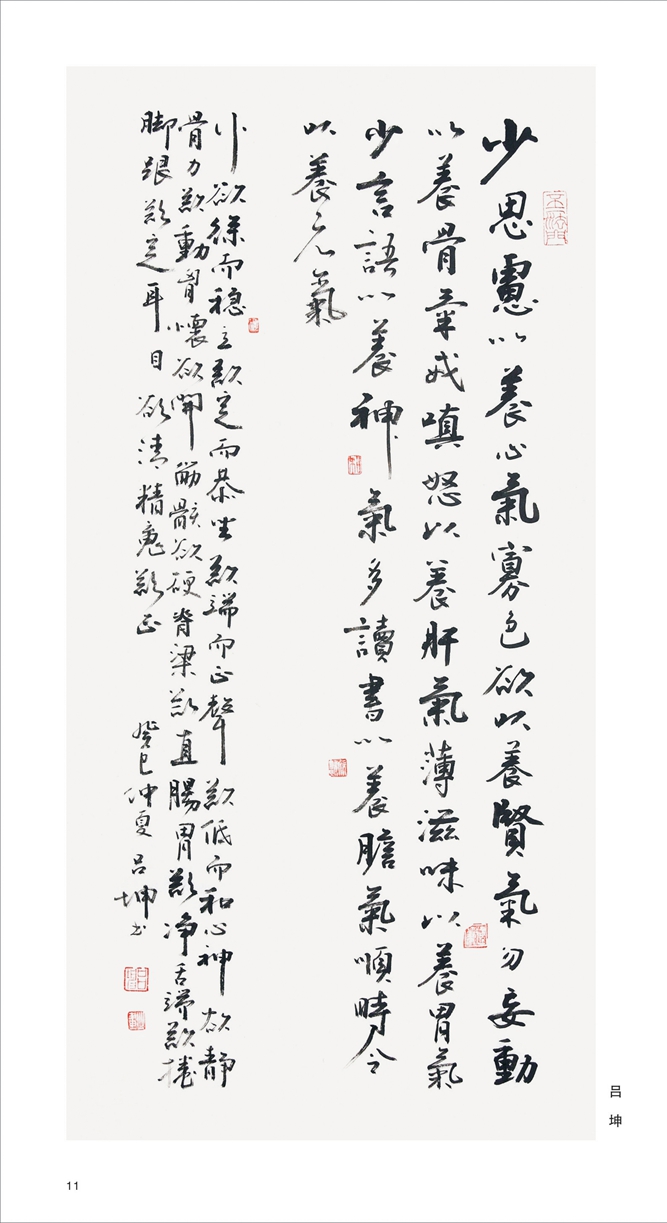 少思慮以養心氣寡色欲以養賢氣勿妄動
以養骨氣戒嗔怒以養肝氣薄滋味以養胃氣
少言語以養神氣多讀書以養膽氣順時令
以養元氣
行欲徐而穩立欲定而恭坐欲端而正聲欲低而和心神欲静
骨力欲動胷懷欲開筋骸欲硬脊梁欲直腸胃欲净舌端欲捲
脚跟欲定耳目欲清精魂欲正
癸巳仲夏吕坤书
吕坤
11